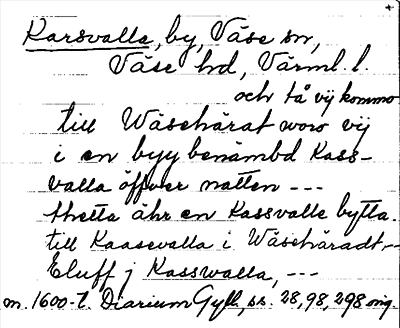 Karsvalla, by, Väse sn,
Väse hd, Värml. l.
och tå vij kommo
till Wäsehärat woro vij
i en byy benämbd Kass-
valla öffver natten ---
thetta ähr en Kassvalle bytta.
till Kaasevalla i Wäsehäradt,--
Eluff j Kasswalla, ---
m. 1600-t. Diarium Gyll, ss. 28, 98, 298